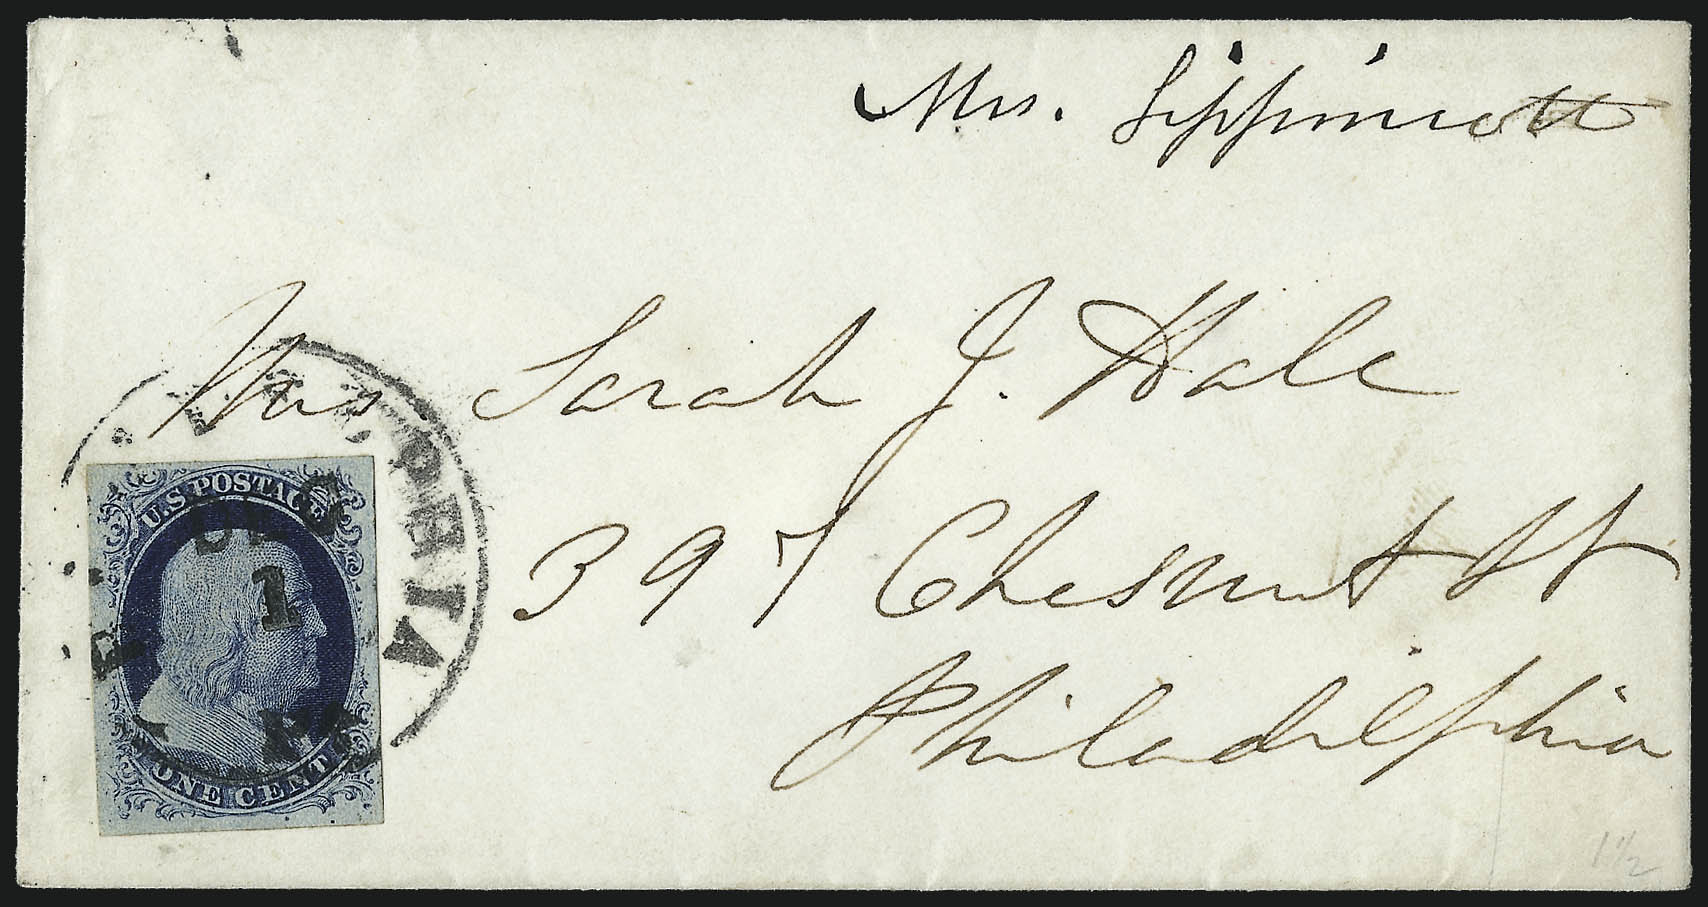 Mrs. Lippincott
Mrs Sarah J. Hale
397 Chesnut St
Philadelphia
U.S. POSTAGE
DEC
1
ONE CENT
1 1/2